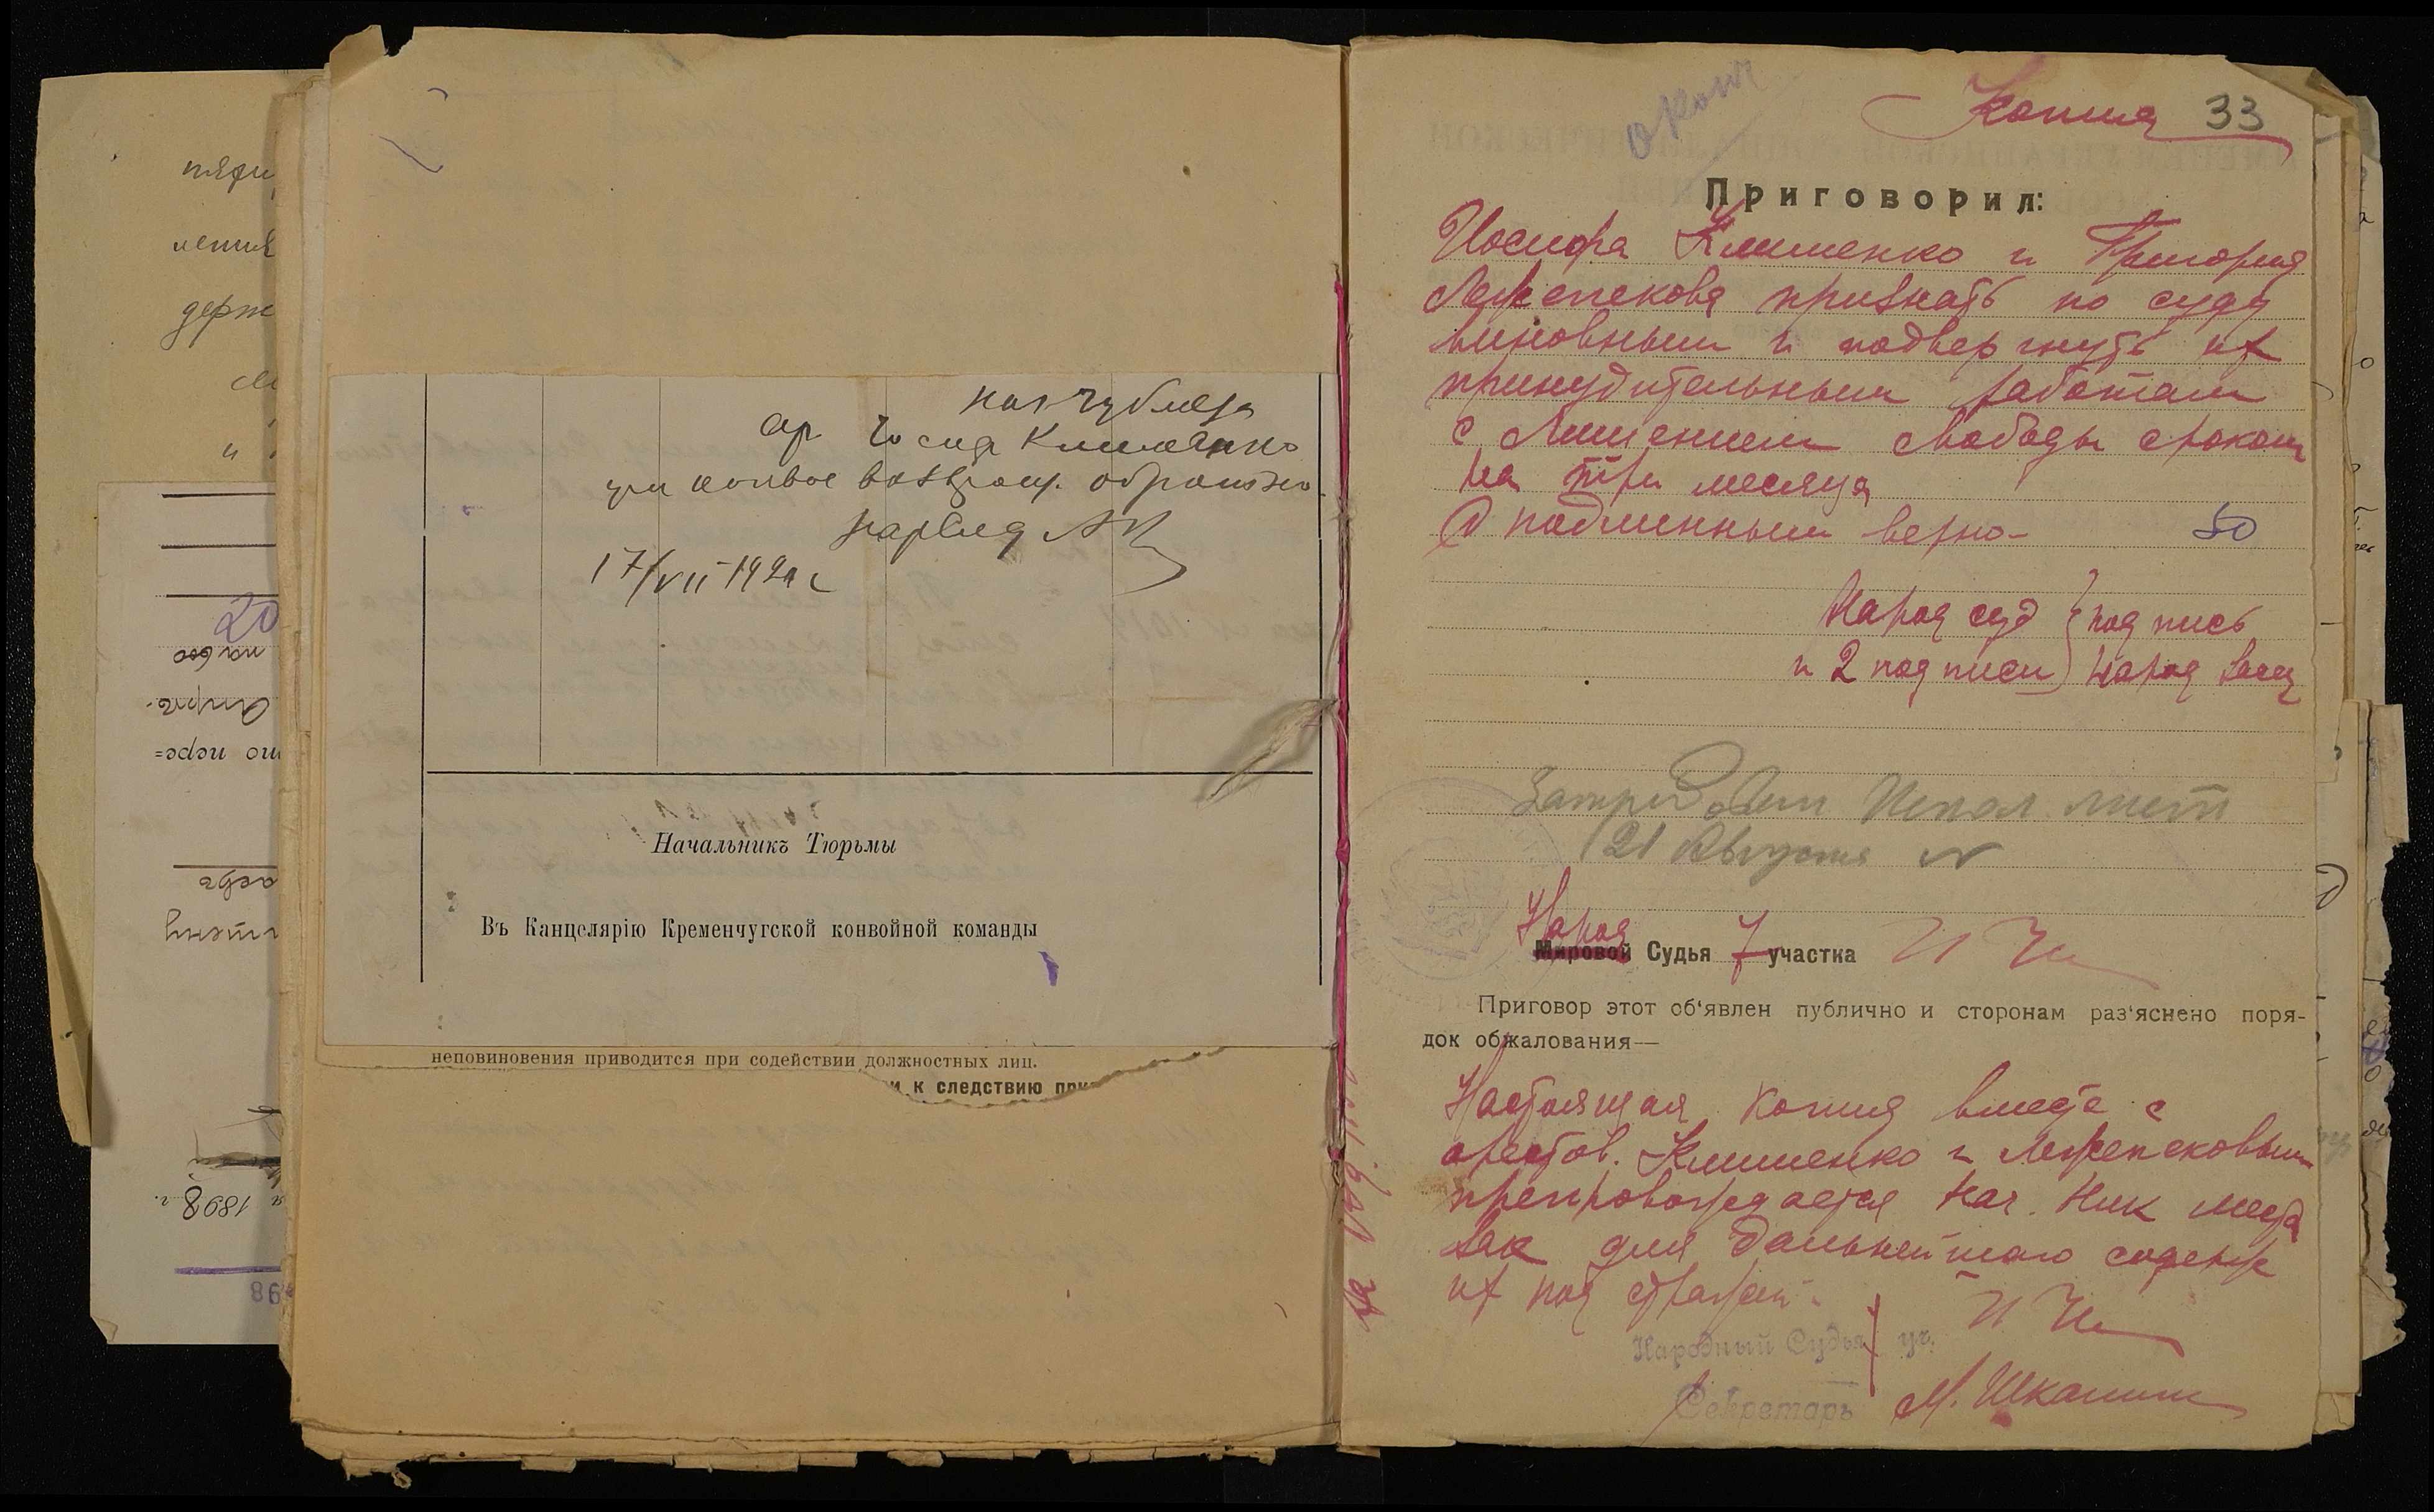 пяти
ления
держ
и
20
на 600
Апрѣ-
то пере=
1898 г.
98
ар Иосиф Клименко
при конвое возвращ. обратно
17/VII 1921 г
Начальникъ Тюрьмы
Въ Канцелярію Кременчугской конвойной команды
неповиновения приводится при содействии должностных лиц.
и к следствию при
Копия 33
Приговорил:
Иосифа Клименко и Григория
Лефенекова признать по суду
виновными и подвергнуть их
принудительным работам
с Лишением свободы сроком
на три месяца
С подлинным верно - 50
Народ суд } подпись
и 2 подписи } народ засед
Испол. лист
21 Августа
Народ
Мировой Судья 7 участка
Приговор этот об'явлен публично и сторонам раз'яснено поря-
док обжалования—
Настоящая копия вместе с
арестов. Клименко и Лефенековым
препровождается Нач. Ник места
зак для дальнейшаго содерж
их под стражей.
Народный Судья 7 уч.
Секретарь М. Шкалин